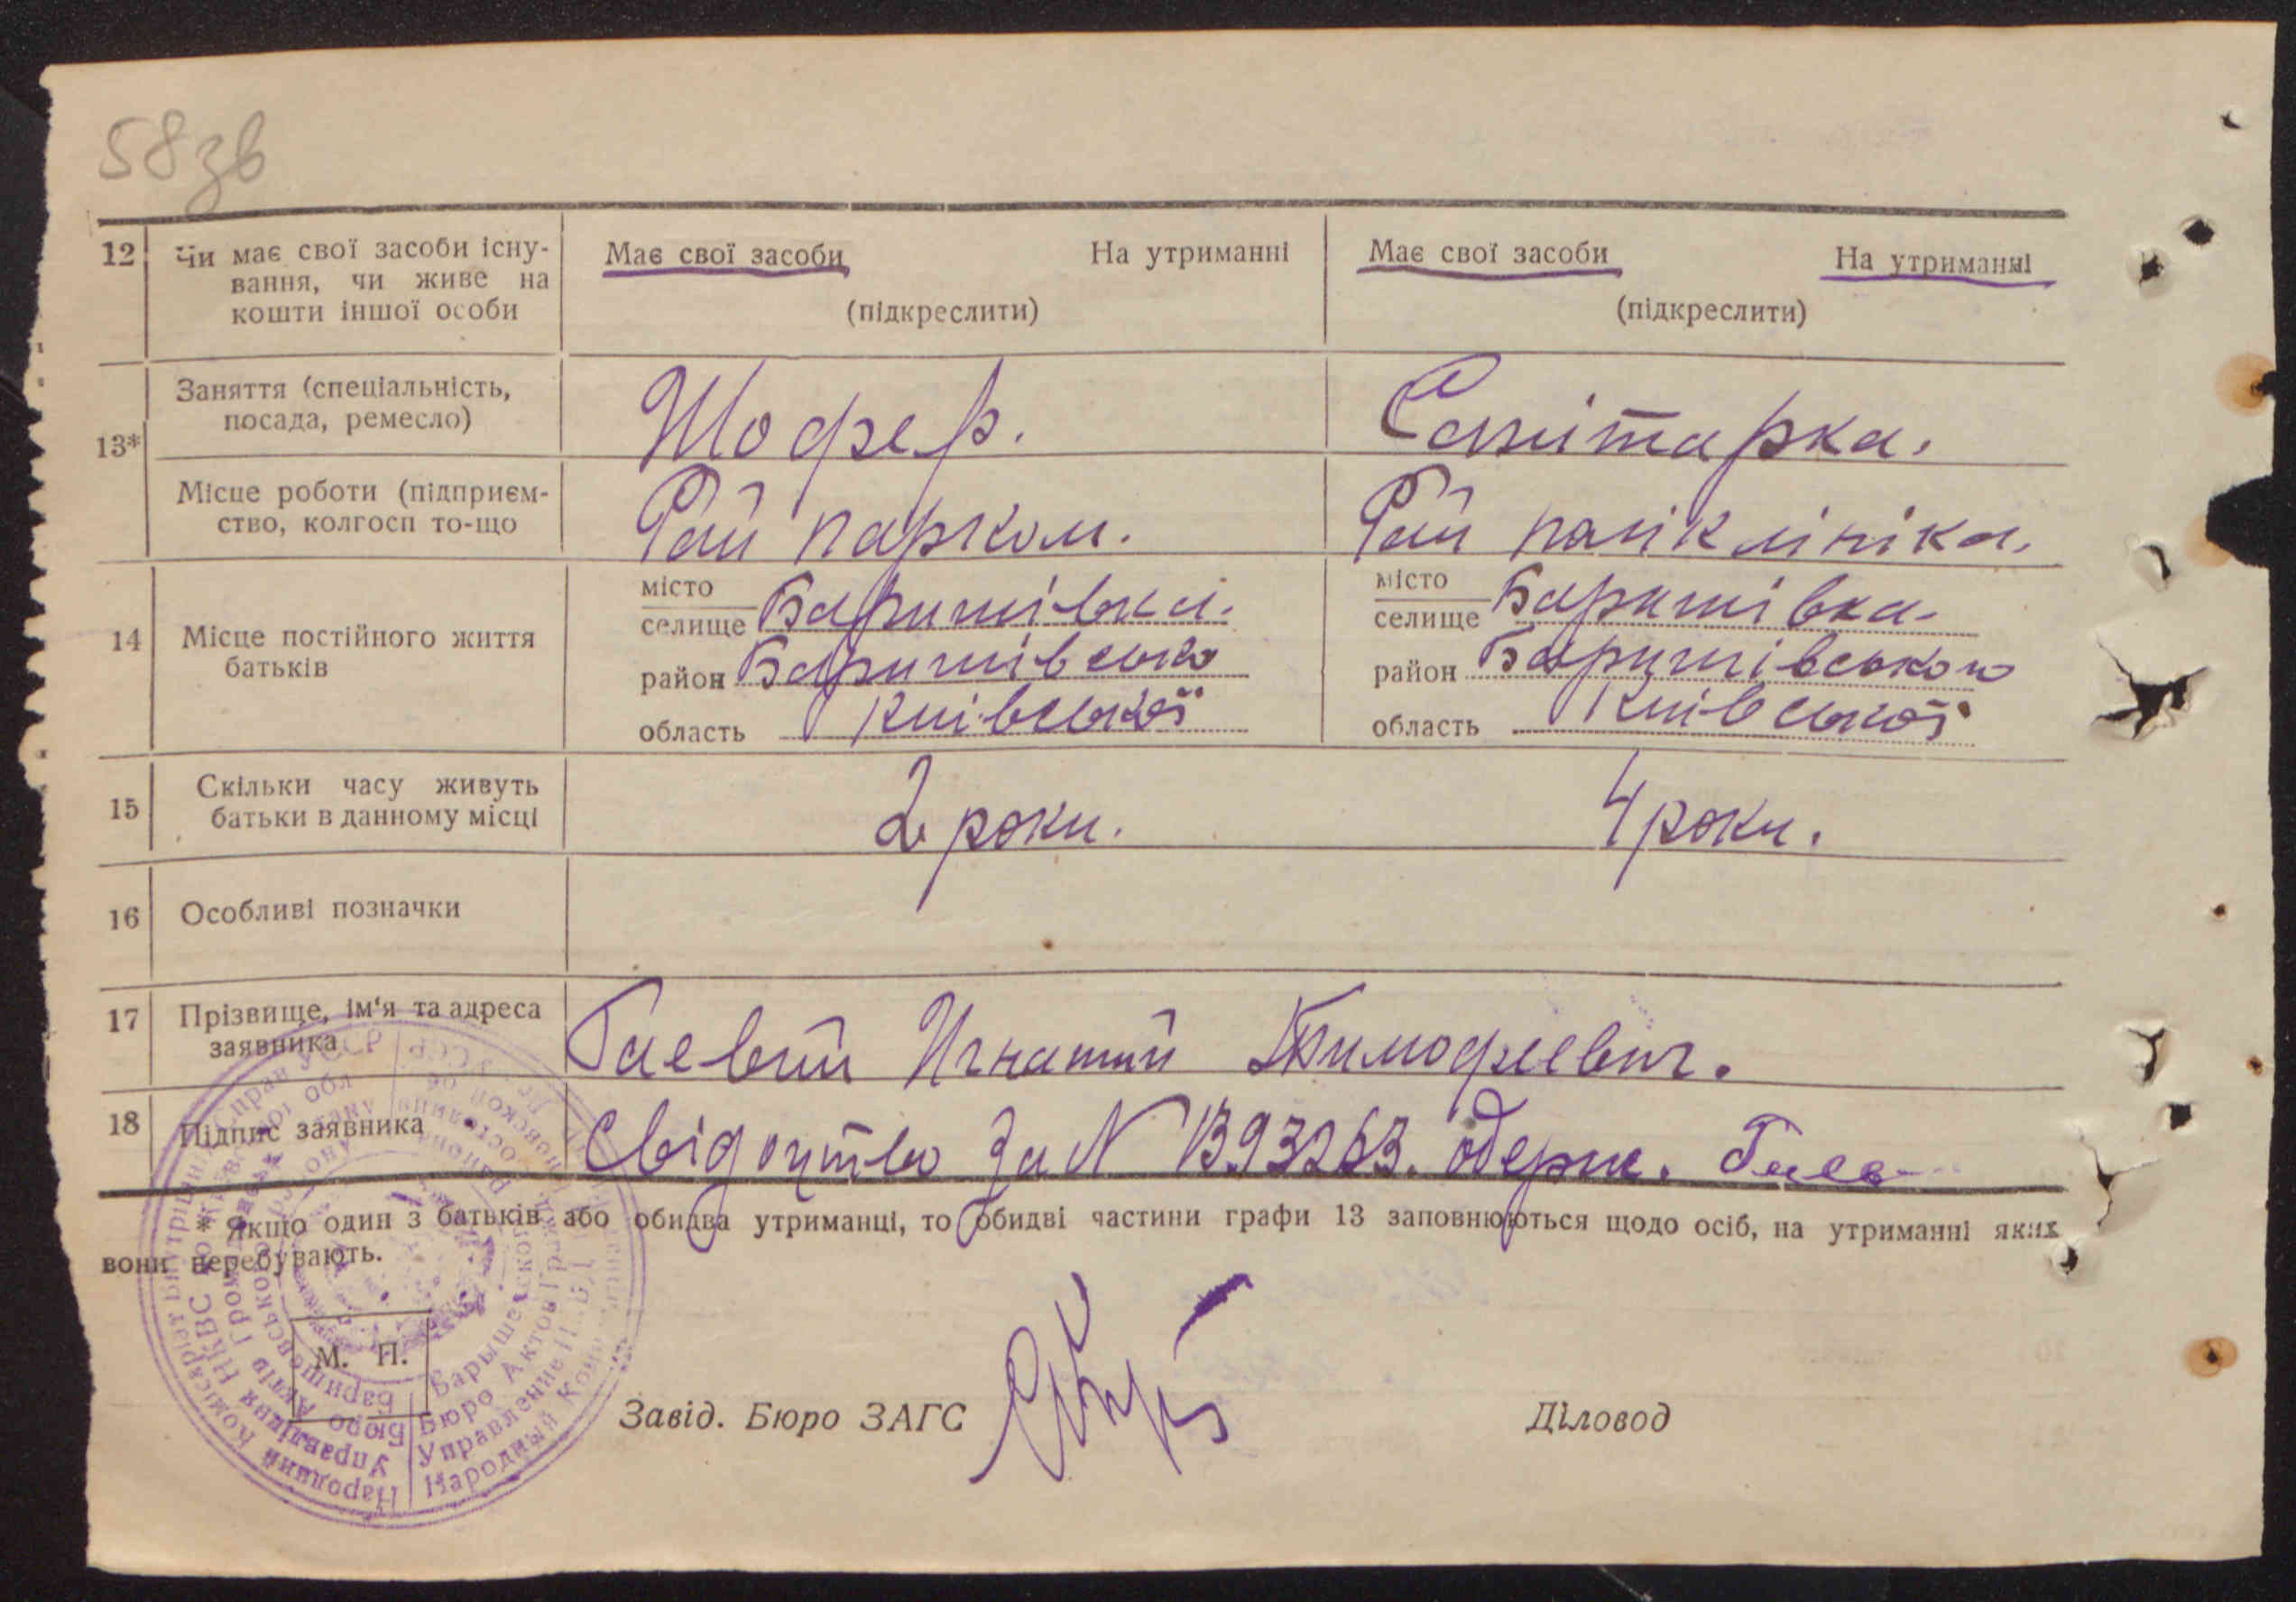 58зв
12 Чи має свої засоби існу- Має свої засоби На утриманні Має свої засоби На утриманні
вання, чи живе на
кошти іншої особи (підкреслити) (підкреслити)
13* Заняття (спеціальність, Шофер. Санітарка.
посада, ремесло)
Місце роботи (підприєм- Рай парком. Рай поліклініка.
ство, колгосп то-що
14 Місце постійного життя місто місто
батьків селище Баришівка. селище Баришівка.
район Баришівсько район Баришівського
область Київської область Київської
15 Скільки часу живуть 2 роки. 4 роки.
батьки в данному місці
16 Особливі позначки
17 Прізвище, ім'я та адреса Гаевий Игнатий Тимофеевич.
заявника
18 Підпис заявника Свідоцтво за N 1393263. одерж. Гаев
* Якщо один з батьків або обидва утриманці, то обидві частини графи 13 заповнюються щодо осіб, на утриманні яких
вони перебувають.
М. П.
Завід. Бюро ЗАГС Діловод
Бюро Актів
Управління НКВС
Народний Комісаріат Внутрішніх Справ УССР
Бюро Актов
Управление
Народный